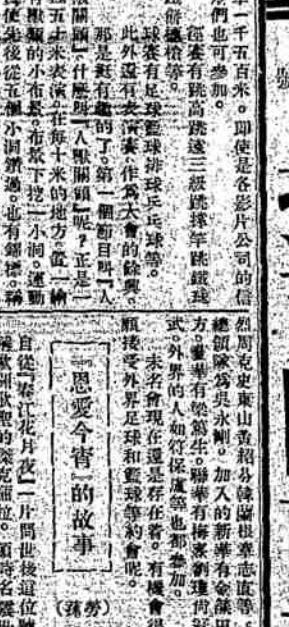 號
單一千五百米。即使是各影片公司的信
們也可參加。
徑賽有跳高跳遠三級跳撑竿跳鐵球
餅標槍等。
球賽有足球籃球排球乒乓球等。
此外還有表演賽,作為大會的餘興。
那是挺有趣的了。第一個節目叫『人
獸關頭』,什麼叫『人獸關頭』呢?正是一
五十米表演。在每十米的地方。置一繪
有獸類的小布景。布景下挖一小洞。運動
員便先後從五個小洞鑽過。也有錦標。稱
然周克史東山黃紹芬韓蘭根章志直等。
總領隊為吳永剛。加入的新華有金燄田
方。藝華有梁篤生。聯華有梅熹劉瓊尚冠
武。外界的人如符保盧等也都參加。
未名會現在還是存在着。有機會很
願接受外界足球和籃球等約會呢。
『恩愛今宵』的故事
(勞蓀)
自從『春江花月夜』一片問世後這位號
稱歐洲歌聖的傑克蒲拉。頓時名震世